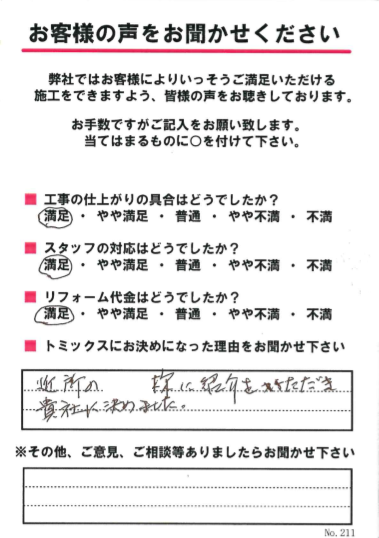 お客様の声をお聞かせください
弊社ではお客様によりいっそうご満足いただける
施工をできますよう、皆様の声をお聴きしております。
お手数ですがご記入をお願い致します。
当てはまるものに○を付けて下さい。
■ 工事の仕上がりの具合はどうでしたか？
満足 ・ やや満足 ・ 普通 ・ やや不満 ・ 不満
■ スタッフの対応はどうでしたか？
満足 ・ やや満足 ・ 普通 ・ やや不満 ・ 不満
■ リフォーム代金はどうでしたか？
満足 ・ やや満足 ・ 普通 ・ やや不満 ・ 不満
■ トミックスにお決めになった理由をお聞かせ下さい
近所の 様に紹介をいただき
貴社に決めました。
※その他、ご意見、ご相談等ありましたらお聞かせ下さい
No. 211